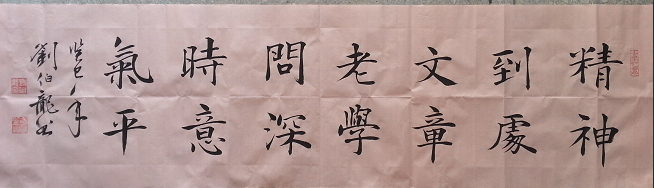 精神
到處
文章
老學
問深
時意
氣平
癸巳年
劉伯龍書